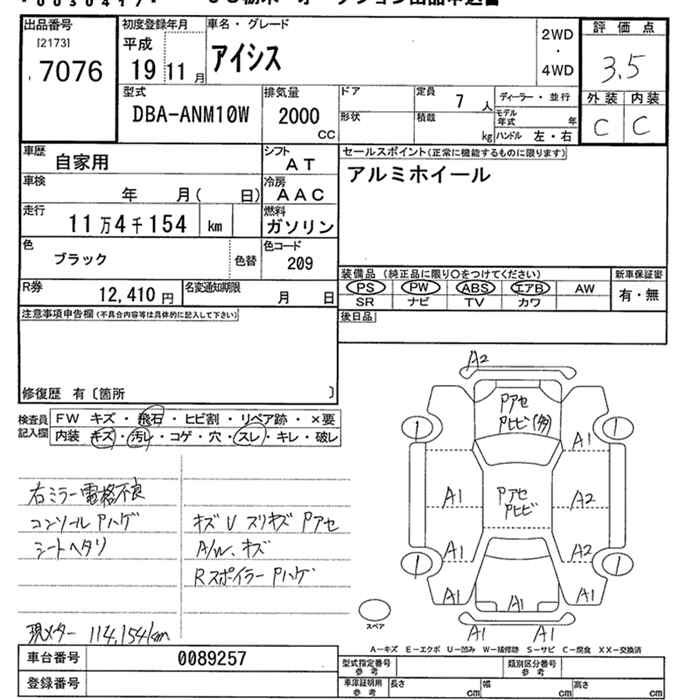 出品番号
[2173]
7076
初度登録年月
平成
19 11 月
車名・グレード
アイシス
2WD
・
4WD
評価点
3.5
外装 内装
C C
型式
DBA-ANM10W
排気量
2000
cc
ドア
形状
定員
7 人
積載
kg
ディーラー・並行
モデル年式 年
ハンドル 左・右
車歴
自家用
シフト
AT
車検
年 月( 日)
冷房
AAC
走行
11万4千154 km
燃料
ガソリン
色
ブラック
色替
色コード
209
R券
12,410 円
名変通知期限
月 日
セールスポイント(正常に機能するものに限ります)
アルミホイール
装備品 (純正品に限り○をつけてください)
PS PW ABS エアB AW
SR ナビ TV カワ
新車保証書
有・無
後日品
注意事項申告欄(不具合内容等は具体的に記入して下さい)
修復歴 有〔箇所 〕
検査員記入欄
FW キズ・飛石・ヒビ割・リペア跡・×要
内装 キズ・汚レ・コゲ・穴・スレ・キレ・破レ
右ミラー電格不良
コンソールPハゲ
シートヘタリ
キズ U スリキズ Pアセ
A/W、キズ
Rスポイラー Pハゲ
現メーター 114,154km
A2
Pアセ
Pヒビ(多)
1 1
A1
A1 Pアセ A2
Pヒビ
A1 A2
1 1
A1 A1 A1
A1 A1
スペア
A-キズ E-エクボ U-凹み W-補修跡 S-サビ C-腐食 XX-交換済
車台番号
0089257
登録番号
型式指定番号
参考
類別区分番号
参考
車庫証明用
参考
長さ cm
幅 cm
高さ cm